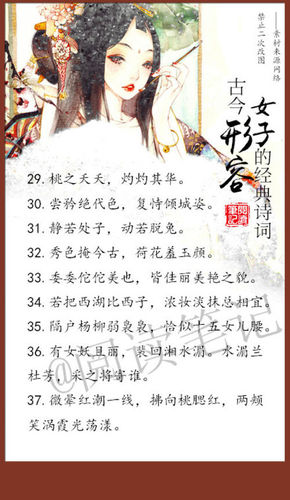 ——素材来源网络
禁止二次改图
古今形容
女子的经典诗词
29. 桃之夭夭，灼灼其华。
30. 尝矜绝代色，复恃倾城姿。
31. 静若处子，动若脱兔。
32. 秀色掩今古，荷花羞玉颜。
33. 委委佗佗美也，皆佳丽美艳之貌。
34. 若把西湖比西子，浓妆淡抹总相宜。
35. 隔户杨柳弱袅袅，恰似十五女儿腰。
36. 有女妖且丽，裴回湘水湄。水湄兰
杜芳，采之将寄谁。
37. 微晕红潮一线，拂向桃腮红，两颊
笑涡霞光荡漾。
@阅读笔记